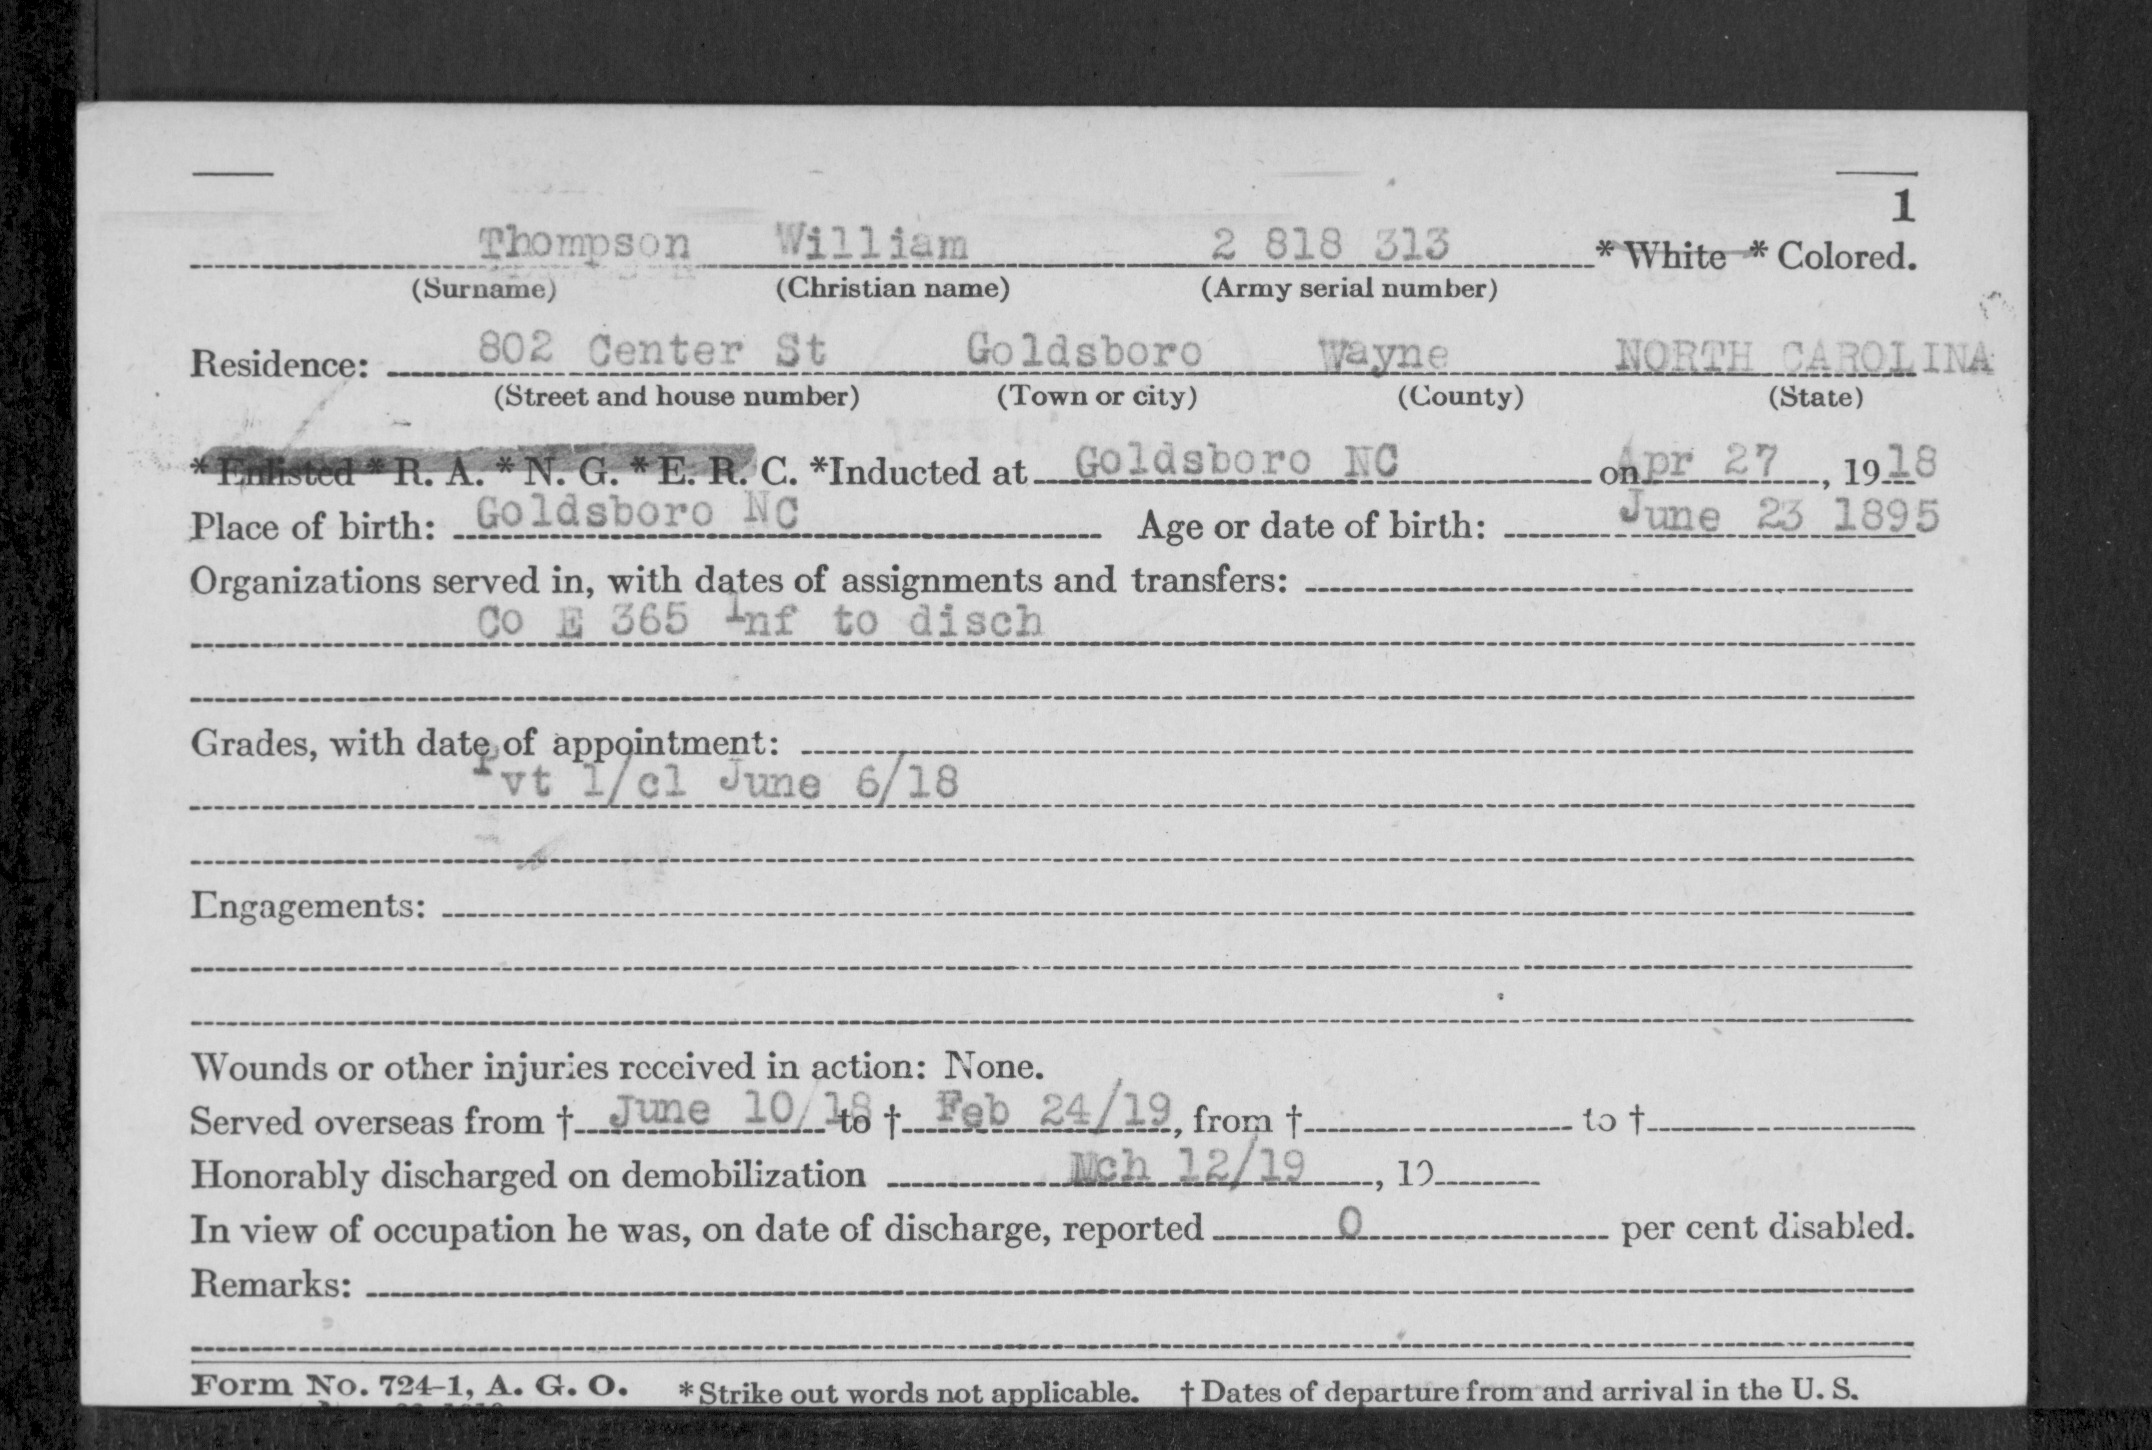 1
Thompson William 2 818 313 * White * Colored.
(Surname) (Christian name) (Army serial number)
Residence: 802 Center St Goldsboro Wayne NORTH CAROLINA
(Street and house number) (Town or city) (County) (State)
* Enlisted * R. A. * N. G. * E. R. C. *Inducted at Goldsboro NC on Apr 27, 1918
Place of birth: Goldsboro NC Age or date of birth: June 23 1895
Organizations served in, with dates of assignments and transfers:
Co E 365 Inf to disch
Grades, with date of appointment:
Pvt 1/cl June 6/18
Engagements:
Wounds or other injuries received in action: None.
Served overseas from † June 10/18 to † Feb 24/19, from † to †
Honorably discharged on demobilization Mch 12/19, 19
In view of occupation he was, on date of discharge, reported 0 per cent disabled.
Remarks:
Form No. 724-1, A. G. O. * Strike out words not applicable. † Dates of departure from and arrival in the U. S.